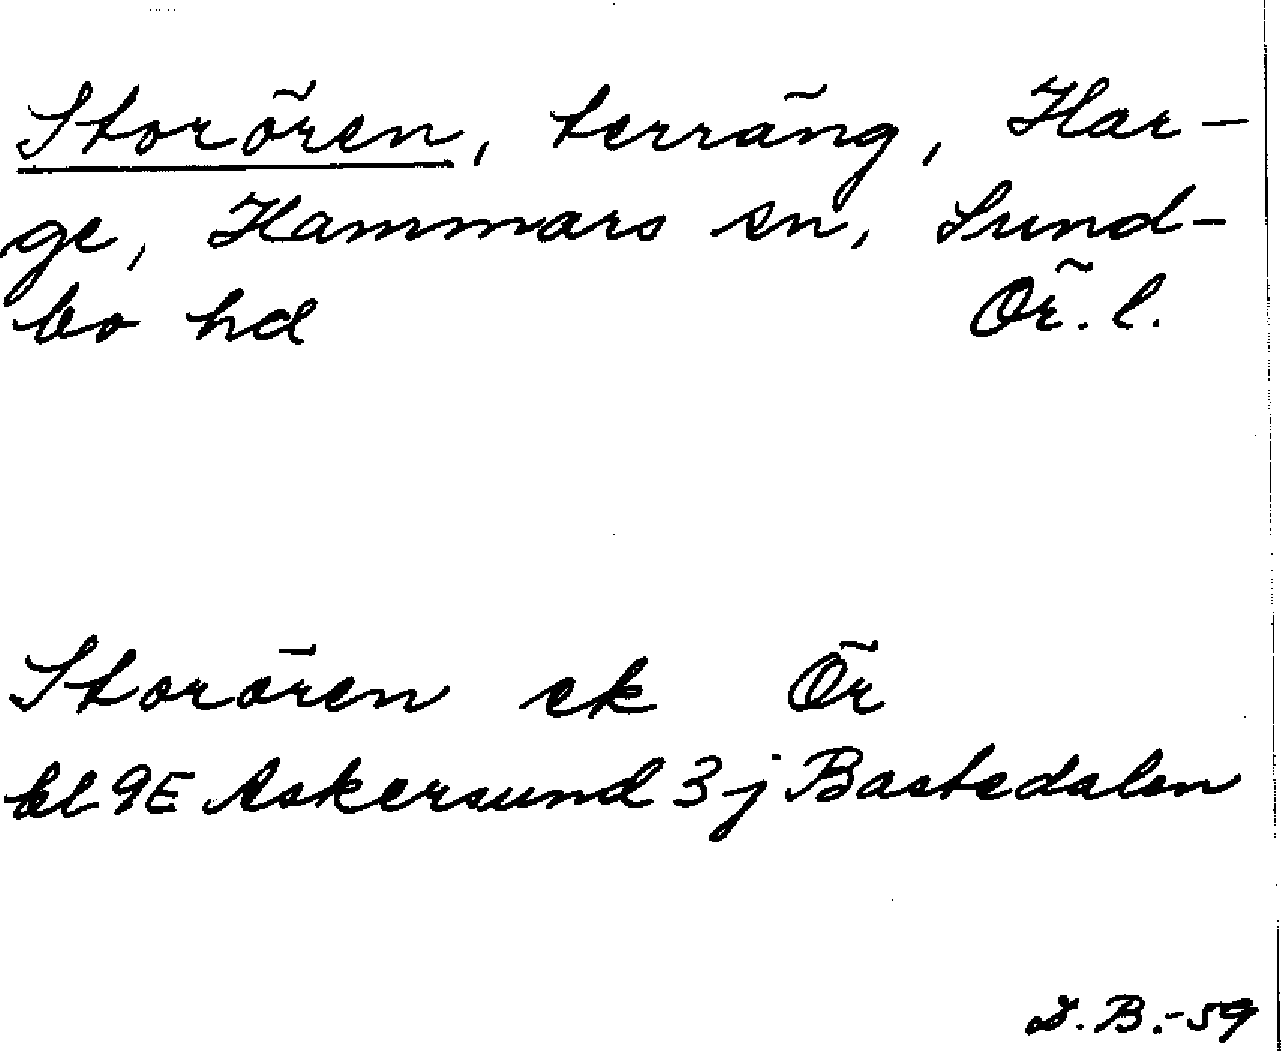 Storören, terräng, Har-
ge, Hammars sn, Sund-
bo hd Ör. l.
Storören ek Ör
bl 9E Askersund 3j Bastedalen
D.B.-59